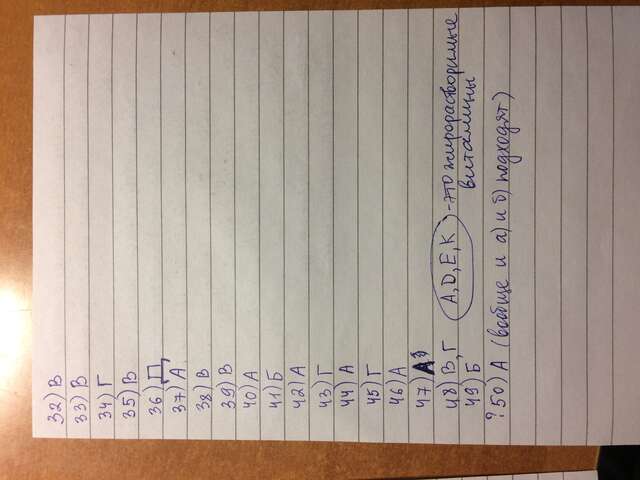 32) В
33) В
34) Г
35) В
36) Д
37) А
38) В
39) В
40) А
41) Б
42) А
43) Г
44) А
45) Г
46) А
47) А
48) В, Г (А, D, E, K) - это жирорастворимые
витамины
49) Б
?50) А (вообще и а) и б) подходят)